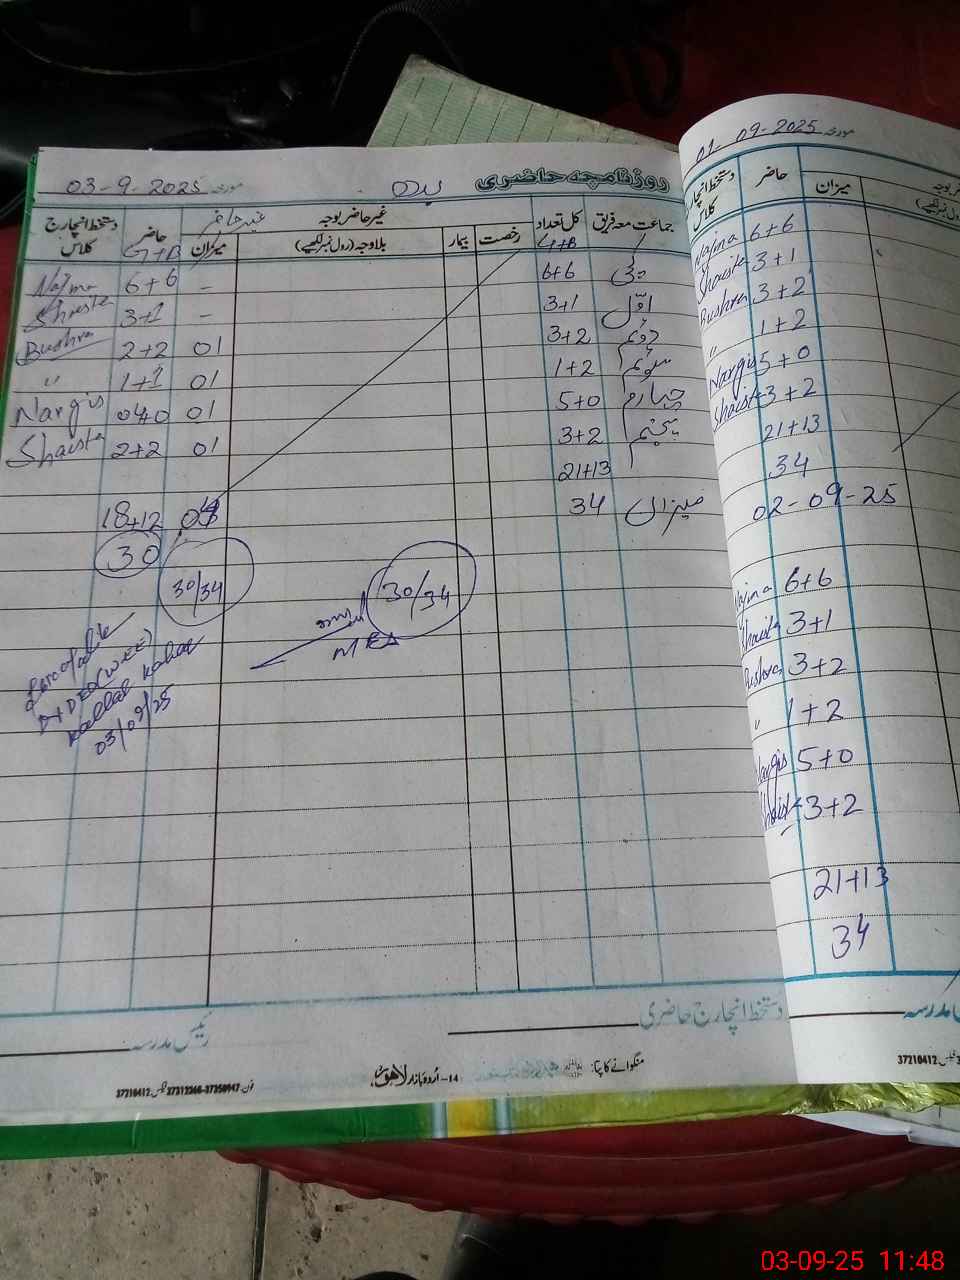 روزنامچہ حاضری
مورخہ 03-9-2025
بدھ
جماعت معہ فریق کل تعداد غیر حاضر بوجہ غیر حاضر حاضر دستخط انچارج کلاس
G+B رخصت بیمار بلاوجہ (رول نمبر لکھیے) میزان G+B
6+6 - 6+6 Najma
اوّل 3+1 - 3+1 Shaista
دوئم 3+2 01 2+2 Bushra
سوئم 1+2 01 1+1 "
چہارم 5+0 01 04+0 Nargis
پنجم 3+2 01 2+2 Shaista
21+13
میزان 34 04 18+12
30
30/34
30/34
MEA
DDEO (W-EE)
Kallar Kahar
03/09/25
دستخط انچارج حاضری
رئیس مدرسہ
منگوانے کا پتا:
14-اُردو بازار لاہور
فون: 37312368-37350947 فیکس: 37210412
مورخہ 01-09-2025
میزان حاضر دستخط انچارج کلاس
6+6 Najma
3+1 Shaista
3+2 Bushra
1+2 "
5+0 Nargis
3+2 Shaista
21+13
34
02-09-25
6+6 Najma
3+1 Shaista
3+2 Bushra
1+2 "
5+0 Nargis
3+2 Shaista
21+13
34
مدرسہ
37210412
03-09-25 11:48